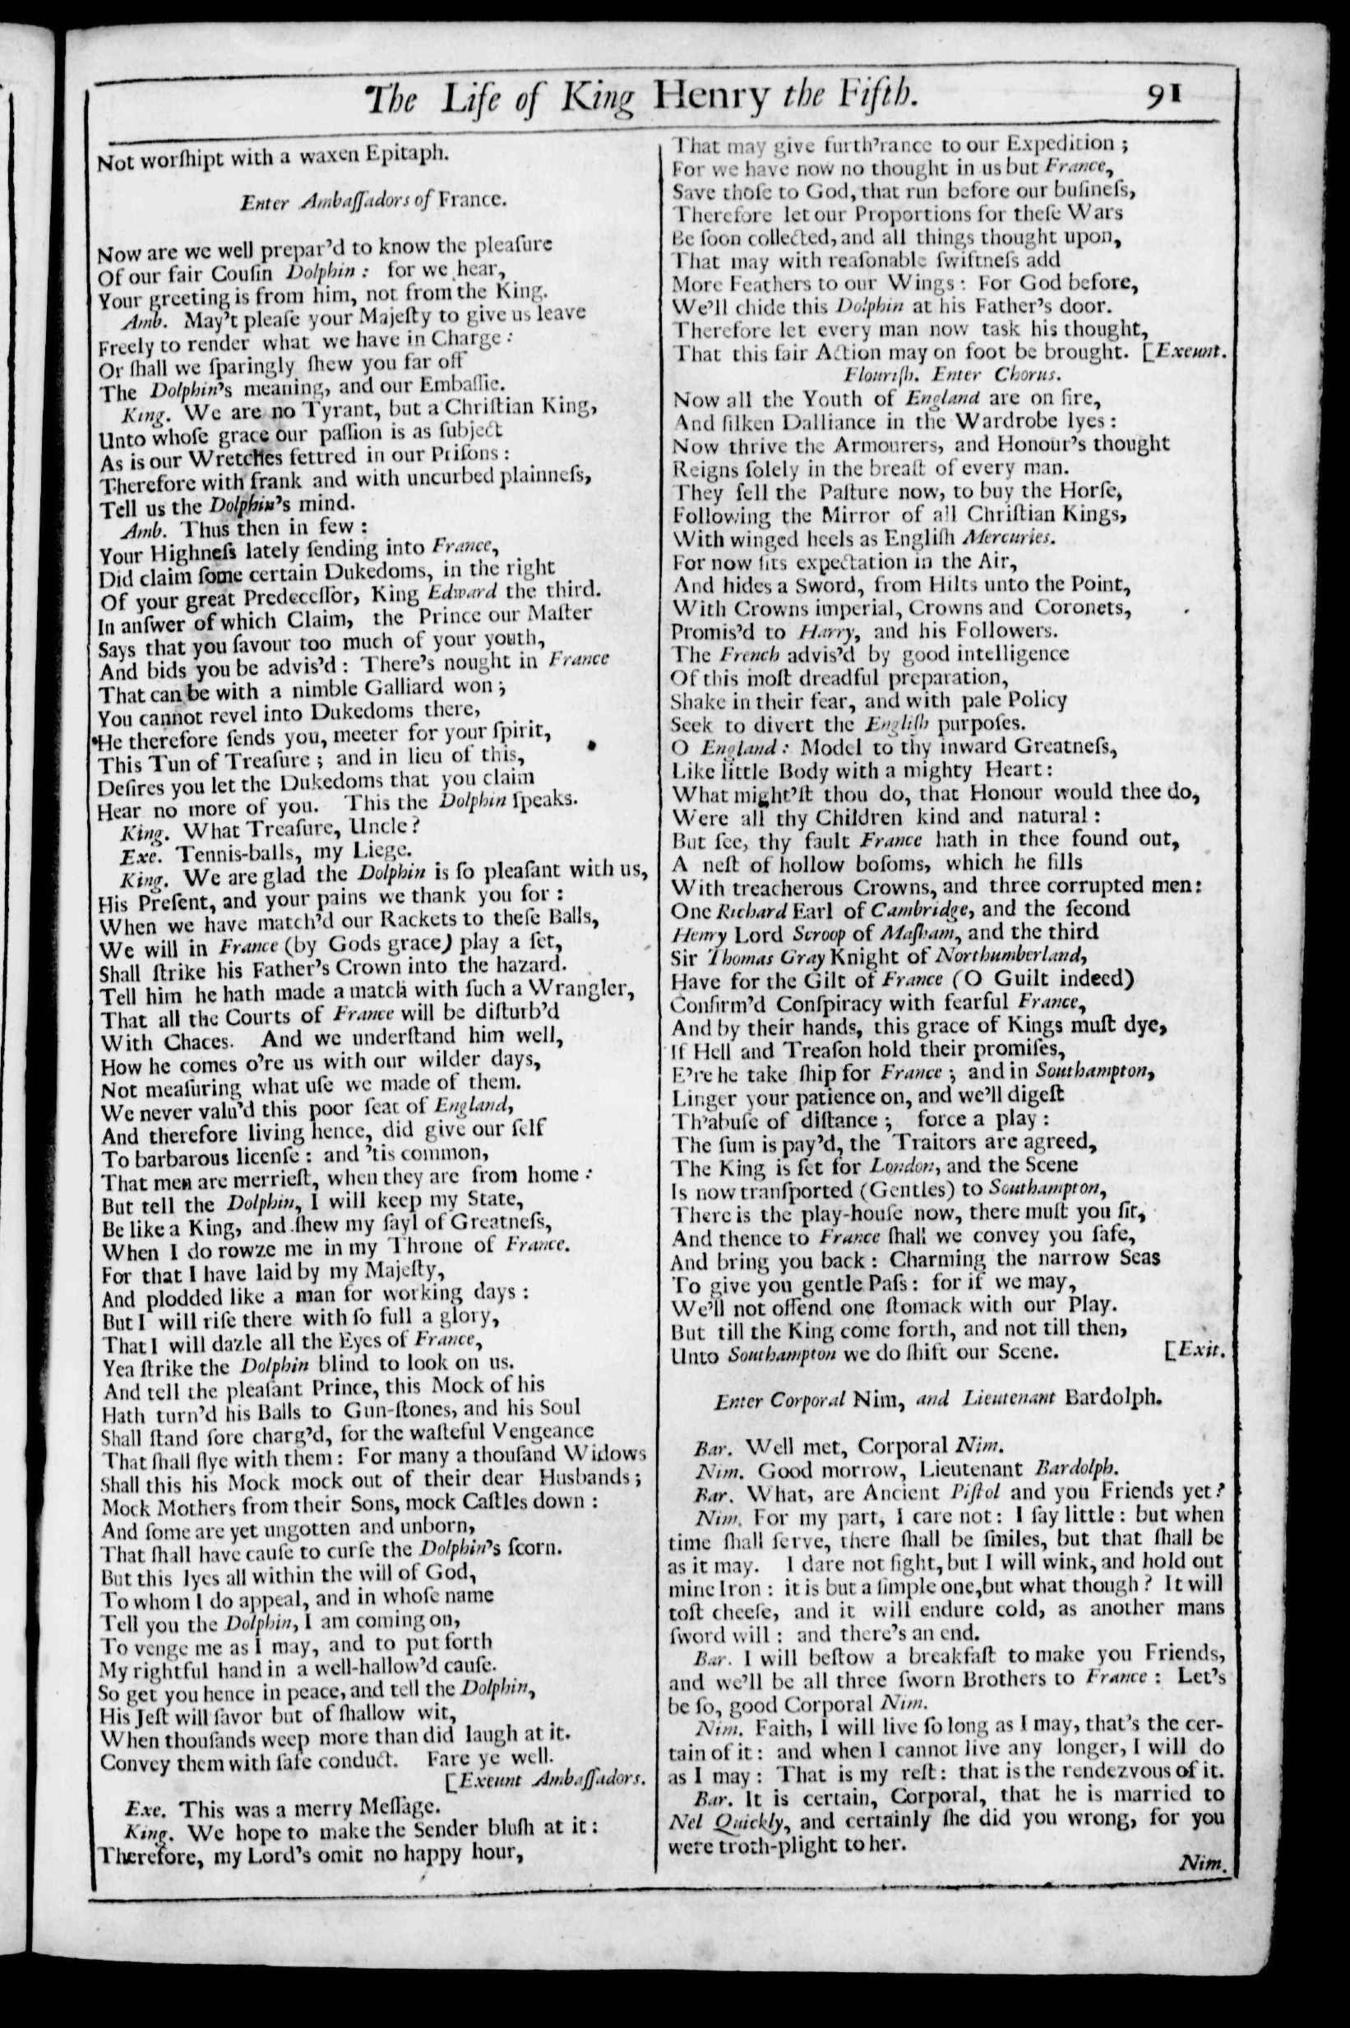 The Life of King Henry the Fifth. 91
Not worſhipt with a waxen Epitaph.
Enter Ambaſſadors of France.
Now are we well prepar'd to know the pleaſure
Of our fair Couſin Dolphin : for we hear,
Your greeting is from him, not from the King.
Amb. May't pleaſe your Majeſty to give us leave
Freely to render what we have in Charge :
Or ſhall we ſparingly ſhew you far off
The Dolphin's meaning, and our Embaſſie.
King. We are no Tyrant, but a Chriſtian King,
Unto whoſe grace our paſſion is as ſubject
As is our Wretches fettred in our Priſons :
Therefore with frank and with uncurbed plainneſs,
Tell us the Dolphin's mind.
Amb. Thus then in few :
Your Highneſs lately ſending into France,
Did claim ſome certain Dukedoms, in the right
Of your great Predeceſſor, King Edward the third.
In anſwer of which Claim, the Prince our Maſter
Says that you ſavour too much of your youth,
And bids you be advis'd : There's nought in France
That can be with a nimble Galliard won ;
You cannot revel into Dukedoms there,
He therefore ſends you, meeter for your ſpirit,
This Tun of Treaſure ; and in lieu of this,
Deſires you let the Dukedoms that you claim
Hear no more of you. This the Dolphin ſpeaks.
King. What Treaſure, Uncle?
Exe. Tennis-balls, my Liege.
King. We are glad the Dolphin is ſo pleaſant with us,
His Preſent, and your pains we thank you for :
When we have match'd our Rackets to theſe Balls,
We will in France (by Gods grace) play a ſet,
Shall ſtrike his Father's Crown into the hazard.
Tell him he hath made a match with ſuch a Wrangler,
That all the Courts of France will be diſturb'd
With Chaces. And we underſtand him well,
How he comes o're us with our wilder days,
Not meaſuring what uſe we made of them.
We never valu'd this poor ſeat of England,
And therefore living hence, did give our ſelf
To barbarous licenſe : and 'tis common,
That men are merrieſt, when they are from home :
But tell the Dolphin, I will keep my State,
Be like a King, and ſhew my ſayl of Greatneſs,
When I do rowze me in my Throne of France.
For that I have laid by my Majeſty,
And plodded like a man for working days :
But I will riſe there with ſo full a glory,
That I will dazle all the Eyes of France,
Yea ſtrike the Dolphin blind to look on us.
And tell the pleaſant Prince, this Mock of his
Hath turn'd his Balls to Gun-ſtones, and his Soul
Shall ſtand ſore charg'd, for the waſteful Vengeance
That ſhall flye with them : For many a thouſand Widows
Shall this his Mock mock out of their dear Husbands ;
Mock Mothers from their Sons, mock Caſtles down :
And ſome are yet ungotten and unborn,
That ſhall have cauſe to curſe the Dolphin's ſcorn.
But this lyes all within the will of God,
To whom I do appeal, and in whoſe name
Tell you the Dolphin, I am coming on,
To venge me as I may, and to put forth
My rightful hand in a well-hallow'd cauſe.
So get you hence in peace, and tell the Dolphin,
His Jeſt will ſavor but of ſhallow wit,
When thouſands weep more than did laugh at it.
Convey them with ſafe conduct. Fare ye well.
[Exeunt Ambaſſadors.
Exe. This was a merry Meſſage.
King. We hope to make the Sender bluſh at it :
Therefore, my Lord's omit no happy hour,
That may give furth'rance to our Expedition ;
For we have now no thought in us but France,
Save thoſe to God, that run before our buſineſs,
Therefore let our Proportions for theſe Wars
Be ſoon collected, and all things thought upon,
That may with reaſonable ſwiftneſs add
More Feathers to our Wings : For God before,
We'll chide this Dolphin at his Father's door.
Therefore let every man now task his thought,
That this fair Action may on foot be brought. [Exeunt.
Flouriſh. Enter Chorus.
Now all the Youth of England are on fire,
And ſilken Dalliance in the Wardrobe lyes :
Now thrive the Armourers, and Honour's thought
Reigns ſolely in the breaſt of every man.
They ſell the Paſture now, to buy the Horſe,
Following the Mirror of all Chriſtian Kings,
With winged heels as Engliſh Mercuries.
For now ſits expectation in the Air,
And hides a Sword, from Hilts unto the Point,
With Crowns imperial, Crowns and Coronets,
Promis'd to Harry, and his Followers.
The French advis'd by good intelligence
Of this moſt dreadful preparation,
Shake in their fear, and with pale Policy
Seek to divert the Engliſh purpoſes.
O England : Model to thy inward Greatneſs,
Like little Body with a mighty Heart :
What might'ſt thou do, that Honour would thee do,
Were all thy Children kind and natural :
But ſee, thy fault France hath in thee found out,
A neſt of hollow boſoms, which he fills
With treacherous Crowns, and three corrupted men :
One Richard Earl of Cambridge, and the ſecond
Henry Lord Scroop of Maſham, and the third
Sir Thomas Gray Knight of Northumberland,
Have for the Gilt of France (O Guilt indeed)
Confirm'd Conſpiracy with fearful France,
And by their hands, this grace of Kings muſt dye,
If Hell and Treaſon hold their promiſes,
E're he take ſhip for France ; and in Southampton,
Linger your patience on, and we'll digeſt
Th'abuſe of diſtance ; force a play :
The ſum is pay'd, the Traitors are agreed,
The King is ſet for London, and the Scene
Is now tranſported (Gentles) to Southampton,
There is the play-houſe now, there muſt you ſit,
And thence to France ſhall we convey you ſafe,
And bring you back : Charming the narrow Seas
To give you gentle Paſs : for if we may,
We'll not offend one ſtomack with our Play.
But till the King come forth, and not till then,
Unto Southampton we do ſhift our Scene. [Exit.
Enter Corporal Nim, and Lieutenant Bardolph.
Bar. Well met, Corporal Nim.
Nim. Good morrow, Lieutenant Bardolph.
Bar. What, are Ancient Piſtol and you Friends yet?
Nim. For my part, I care not : I ſay little : but when
time ſhall ſerve, there ſhall be ſmiles, but that ſhall be
as it may. I dare not fight, but I will wink, and hold out
mine Iron : it is but a ſimple one, but what though? It will
toſt cheeſe, and it will endure cold, as another mans
ſword will : and there's an end.
Bar. I will beſtow a breakfaſt to make you Friends,
and we'll be all three ſworn Brothers to France : Let's
be ſo, good Corporal Nim.
Nim. Faith, I will live ſo long as I may, that's the cer-
tain of it : and when I cannot live any longer, I will do
as I may : That is my reſt : that is the rendezvous of it.
Bar. It is certain, Corporal, that he is married to
Nel Quickly, and certainly ſhe did you wrong, for you
were troth-plight to her.
Nim.